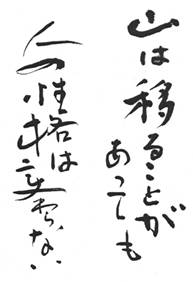 山は移ることが
あっても
人の性格は
変らない